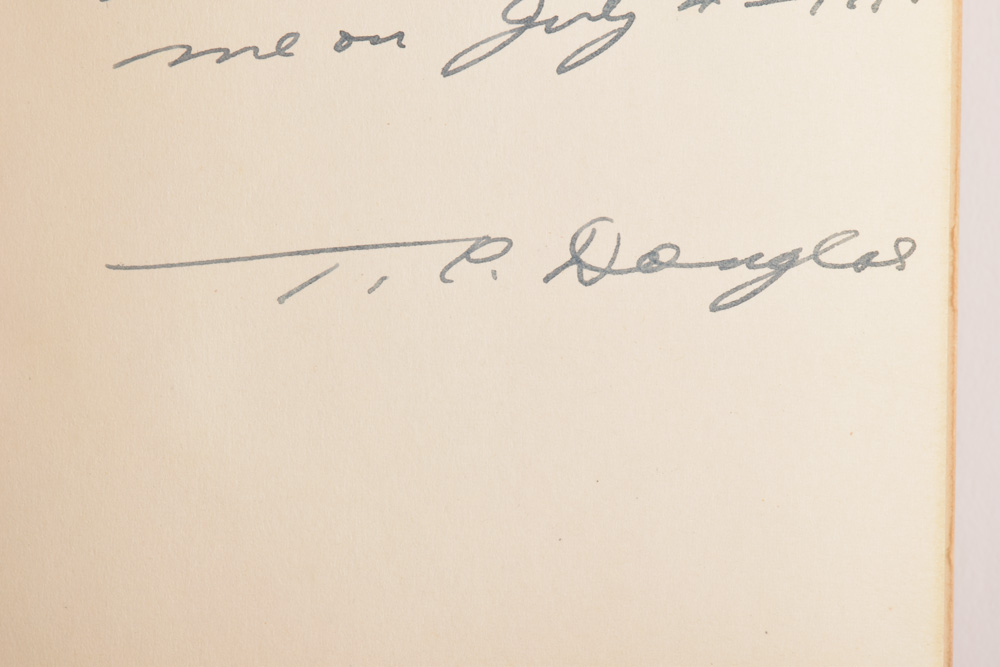 me on July 4
T. C. Douglas